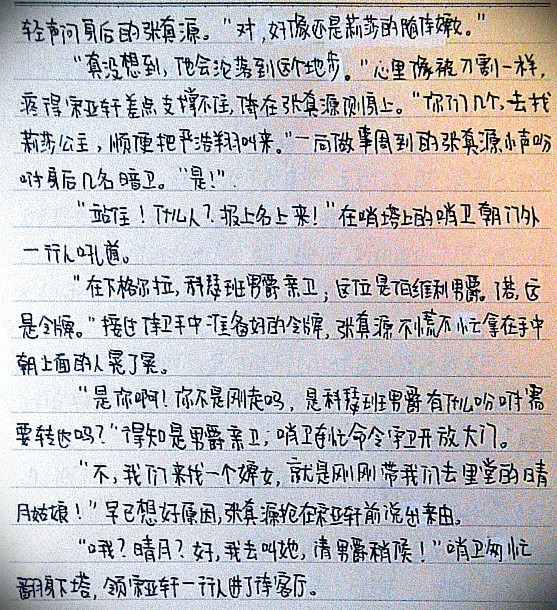 轻声问身后的张真源。"对,好像还是莉莎的随侍嫩。"
"真没想到,他会沦落到这个地步。"心里像被刀割一样,
疼得宋亚轩差点支撑不住,倚在张真源侧身上。"你们几个,去找
莉莎公主,顺便把严浩翔叫来。"一向做事周到的张真源小声吩
咐身后几名暗卫。"是!"
"站住!什么人?报上名上来!"在哨塔上的哨卫朝门外
一行人吼道。
"在下格尔拉,科瑟班男爵亲卫;这位是伯维利男爵。喏,这
是令牌。"接过侍卫手中准备好的令牌,张真源不慌不忙拿在手中
朝上面的人晃了晃。
"是你啊!你不是刚走吗,是科瑟班男爵有什么吩咐需
要转达吗?"得知是男爵亲卫;哨卫连忙命令守卫开放大门。
"不,我们来找一个婢女,就是刚刚带我们去里堂的晴
月姑娘!"早已想好原因,张真源抢在宋亚轩前说出来由。
"哦?晴月?好,我去叫她,请男爵稍候!"哨卫匆忙
翻身下塔,领宋亚轩一行人进了待客厅。